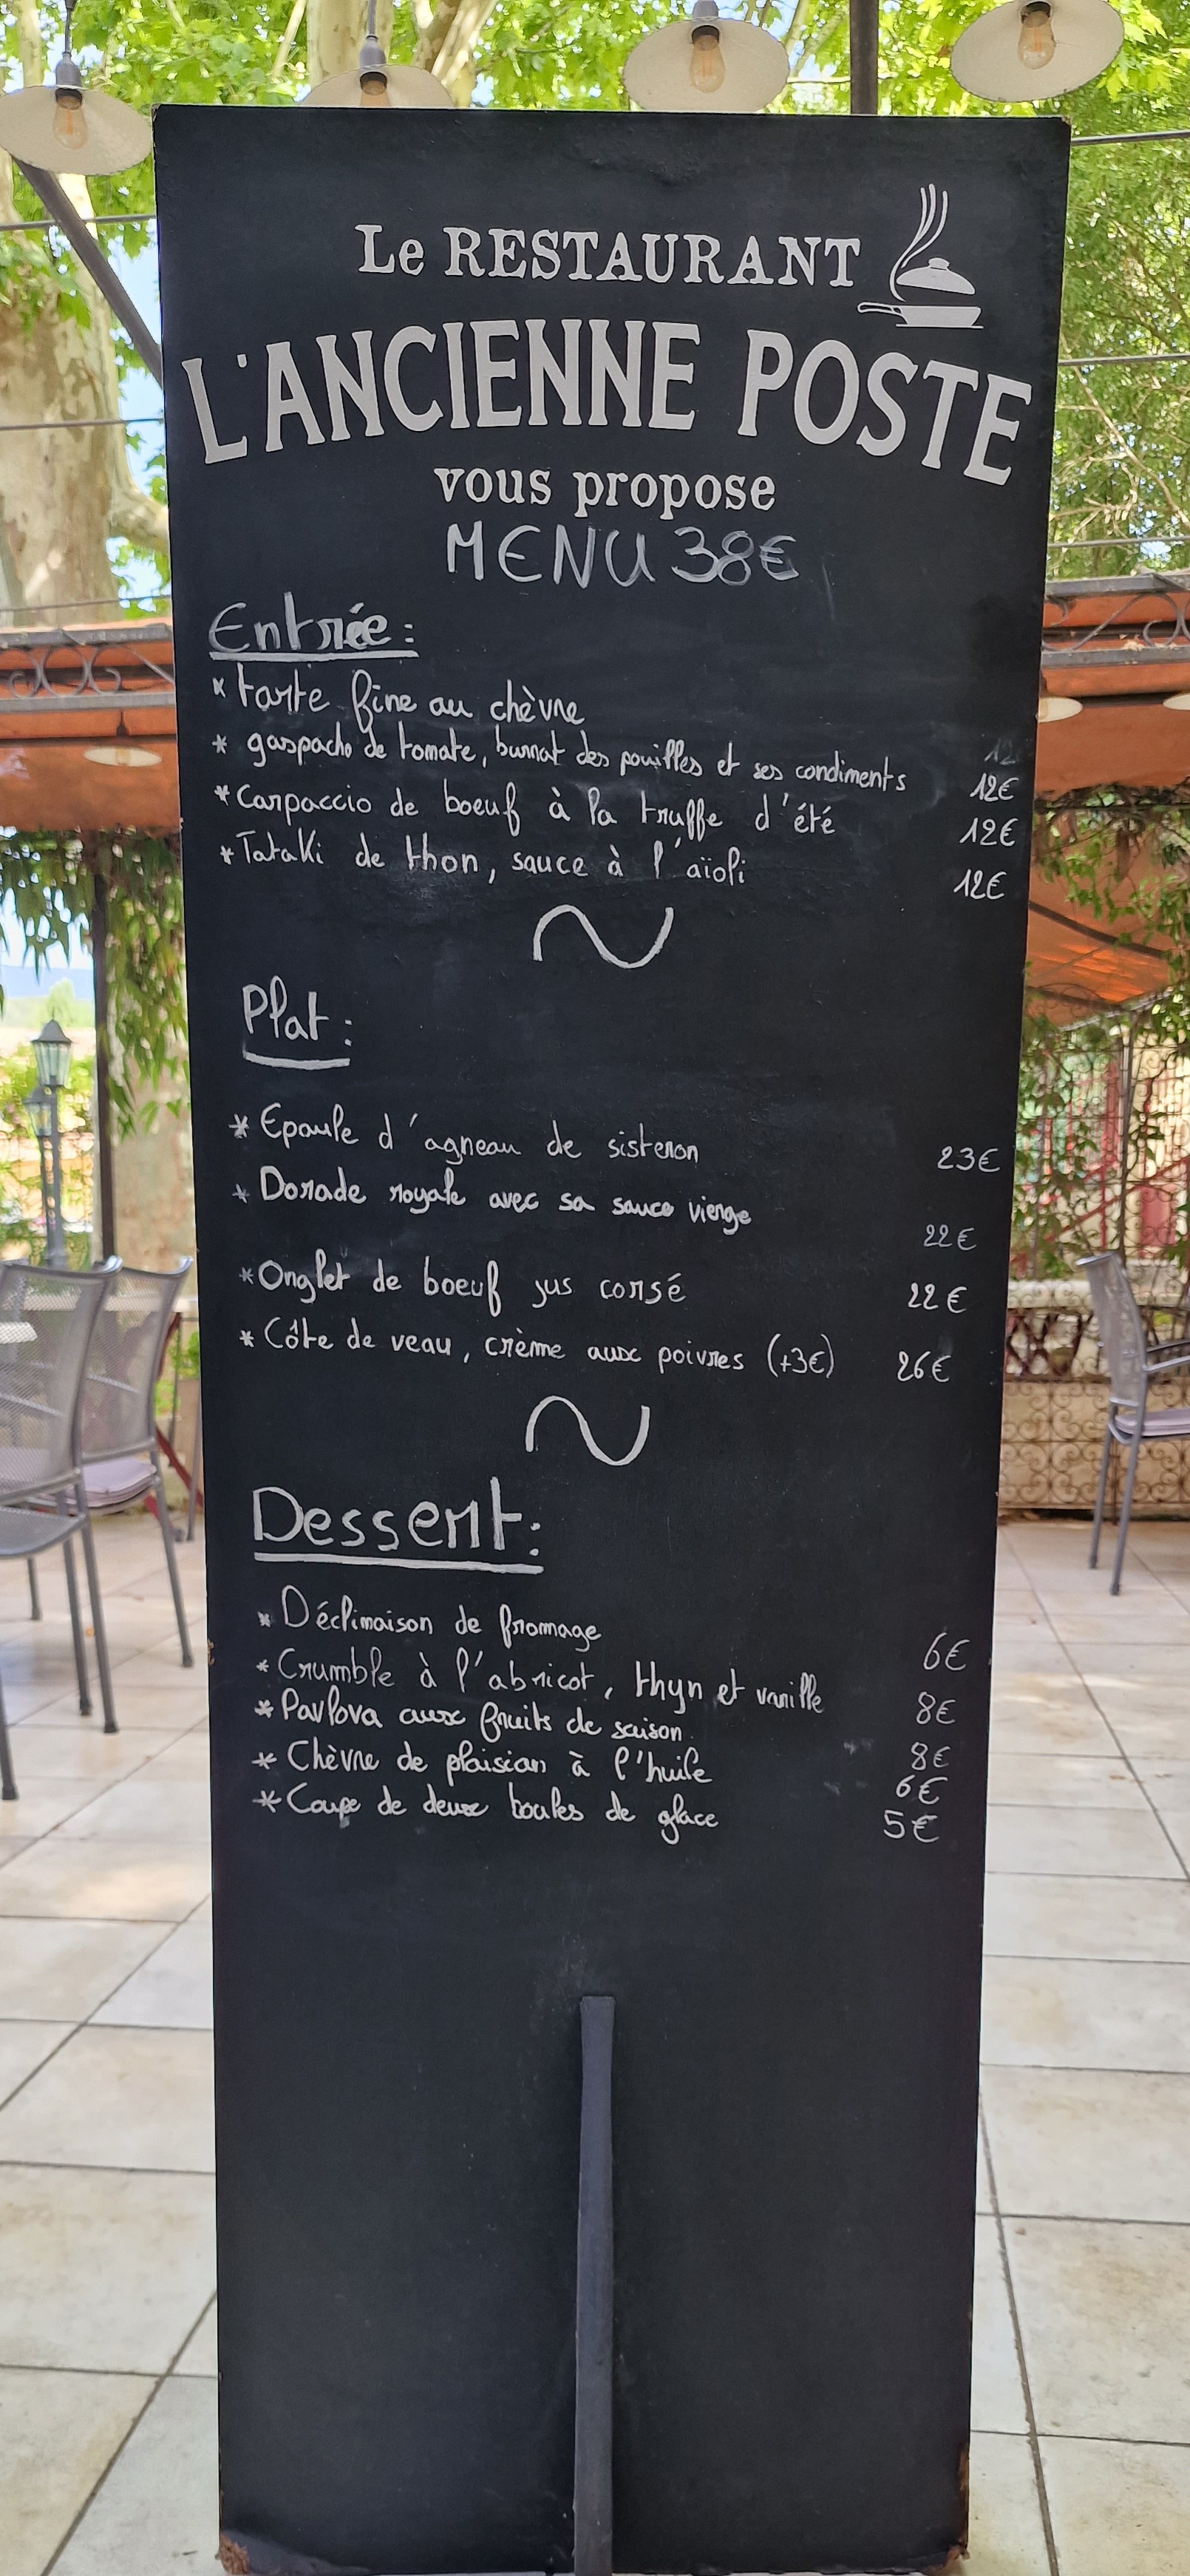 Le RESTAURANT
L'ANCIENNE POSTE
vous propose
MENU 38€
Entrée :
* tarte fine au chèvre 12
* gaspacho de tomate, burrat des pouilles et ses condiments 12€
* Carpaccio de boeuf à la truffe d'été 12€
* Tataki de thon, sauce à l'aïoli 12€
Plat :
* Epaule d'agneau de sisteron 23€
* Dorade royale avec sa sauce vierge 22€
* Onglet de boeuf jus corsé 22€
* Côte de veau, crème aux poivres (+3€) 26€
Dessert :
* Déclinaison de fromage 6€
* Crumble à l'abricot, thyn et vanille 8€
* Pavlova aux fruits de saison. 8€
* Chèvre de plaisian à l'huile 6€
* Coupe de deux boules de glace 5€